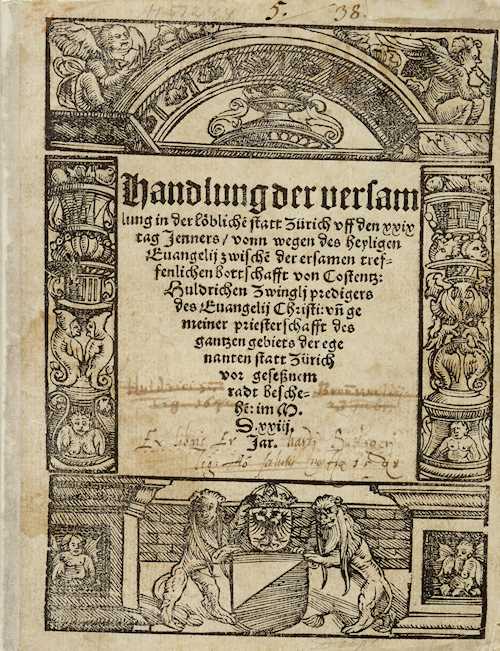 5. 38.
Handlung der versam
lung in der löblichē statt Zürich vff den xxix
tag Jenners / vonn wegen des heyligen
Euangelij zwischē der ersamen tref-
fenlichen bottschafft von Costentz:
Huldrichen Zwinglj predigers
des Euangelij Christi: vñ ge
meiner priesterschafft des
gantzen gebiets der ege
nanten statt Zürich
vor geseßnem
radt besche-
hē: im M.
D.xxiij.
Jar.